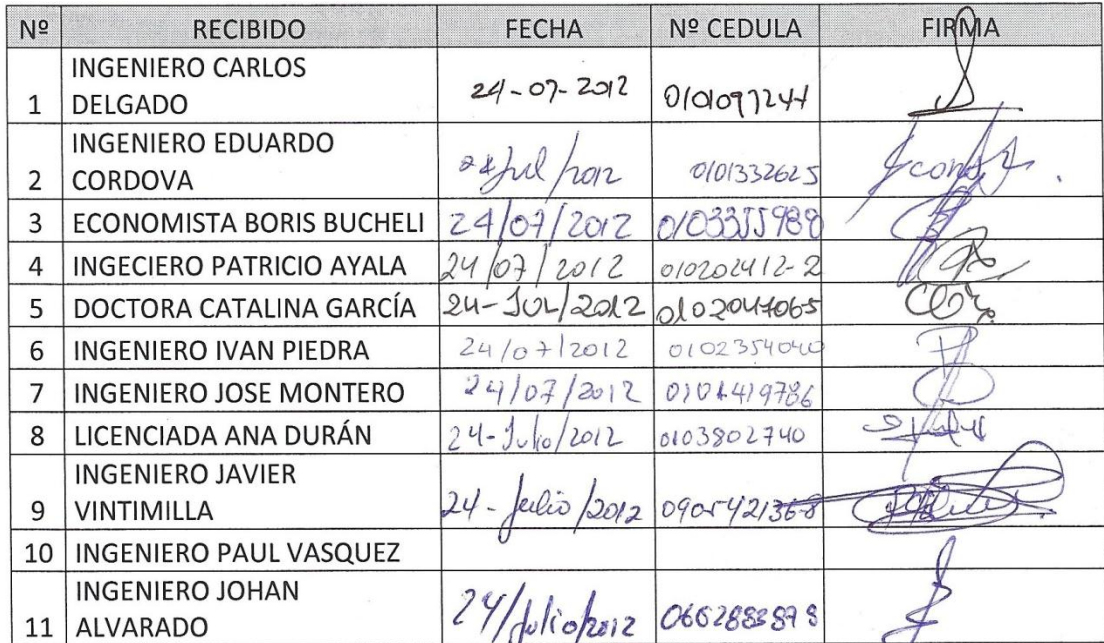 Nº RECIBIDO FECHA Nº CEDULA FIRMA
INGENIERO CARLOS
1 DELGADO 24-07-2012 0101097244
INGENIERO EDUARDO
2 CORDOVA 24 Jul/2012 0101332625
3 ECONOMISTA BORIS BUCHELI 24/07/2012 0103355989
4 INGECIERO PATRICIO AYALA 24/07/2012 010202412-2
5 DOCTORA CATALINA GARCÍA 24-JUL/2012 0102047065
6 INGENIERO IVAN PIEDRA 24/07/2012 0102354040
7 INGENIERO JOSE MONTERO 24/07/2012
8 LICENCIADA ANA DURÁN 24-Julio/2012 0103802740
INGENIERO JAVIER
9 VINTIMILLA 24-Julio/2012 0905421368
10 INGENIERO PAUL VASQUEZ
INGENIERO JOHAN
11 ALVARADO 24/Julio/2012